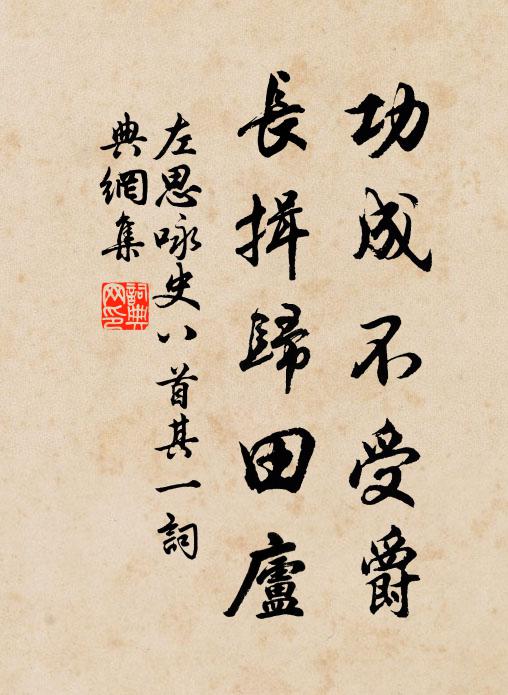 功成不受爵
長揖歸田廬
左思咏史八首其一詞
典網集
詞典網印